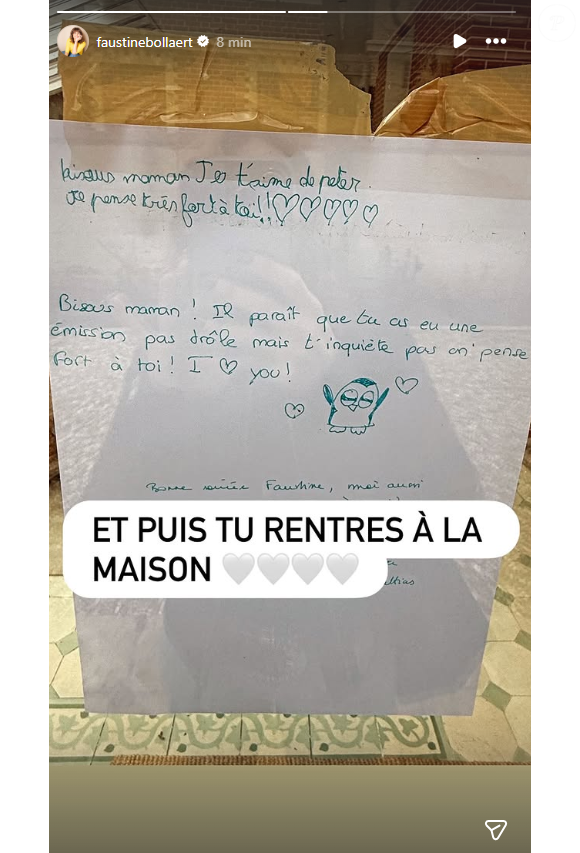 faustinebollaert 8 min
bisous maman Je t'aime de peter.
Je pense très fort à toi!!
Bisous maman ! Il paraît que tu as eu une
émission pas drôle mais t'inquiète pas on pense
fort à toi ! I you !
Bonne soirée Faustine, moi aussi
ET PUIS TU RENTRES À LA
MAISON 🤍🤍🤍🤍